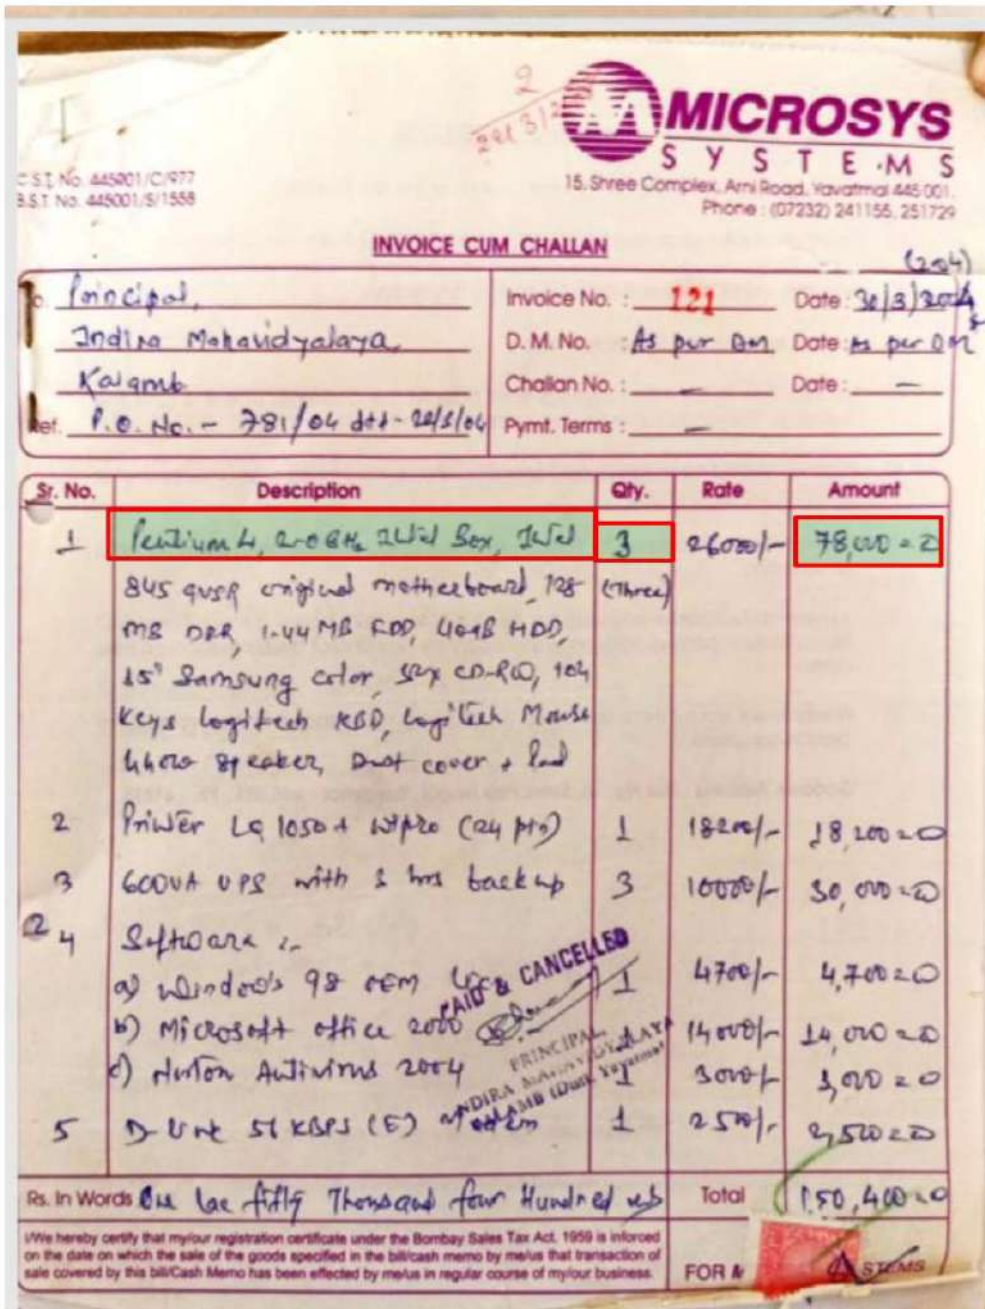 2
MICROSYS
SYSTEMS
C.S.T. No. 445001/C/977
B.S.T. No. 445001/S/1558
15, Shree Complex, Arni Road, Yavatmal 445 001.
Phone : (07232) 241155, 251729
INVOICE CUM CHALLAN
(204)
To. Principal,
Indira Mahavidyalaya,
Kalamb
Ref. P.O. No. - 781/04 dtd -
Invoice No. : 121 Date : 30/3/2004
D. M. No. : As per DM Date : As per DM
Challan No. : — Date : —
Pymt. Terms : —
Sr. No. Description Qty. Rate Amount
1 Pentium 4, 2.0 GHz Intel Box, Intel 3 26000/- 78,000=0
845 original motherboard, 128 (Three)
MB DDR, 1.44 MB FDD, 40GB HDD,
15" Samsung color, 52x CD-RW, 104
Keys Logitech KBD, Logitech Mouse
speaker, Dust cover + Pad
2 Printer LQ 1050+ Wipro (24 pin) 1 18200/- 18,200=0
3 600VA UPS with hrs backup 3 10000/- 30,000=0
2
4 Software :-
a) Windows 98 OEM 1 4700/- 4,700=0
b) Microsoft office 2000 1 14000/- 14,000=0
c) Norton Antivirus 2004 1 3000/- 3,000=0
5 D-Link 56 KBPS (E) Modem 1 2500/- 2,500=0
PAID & CANCELLED
PRINCIPAL
INDIRA MAHAVIDYALAYA
KALAMB (Distt. Yavatmal)
Rs. In Words One lac fifty Thousand four Hundred Total 1,50,400=0
I/We hereby certify that my/our registration certificate under the Bombay Sales Tax Act. 1959 is inforced
on the date on which the sale of the goods specified in the bill/cash memo by me/us that transaction of
sale covered by this bill/Cash Memo has been effected by me/us in regular course of my/our business.
FOR M STEMS